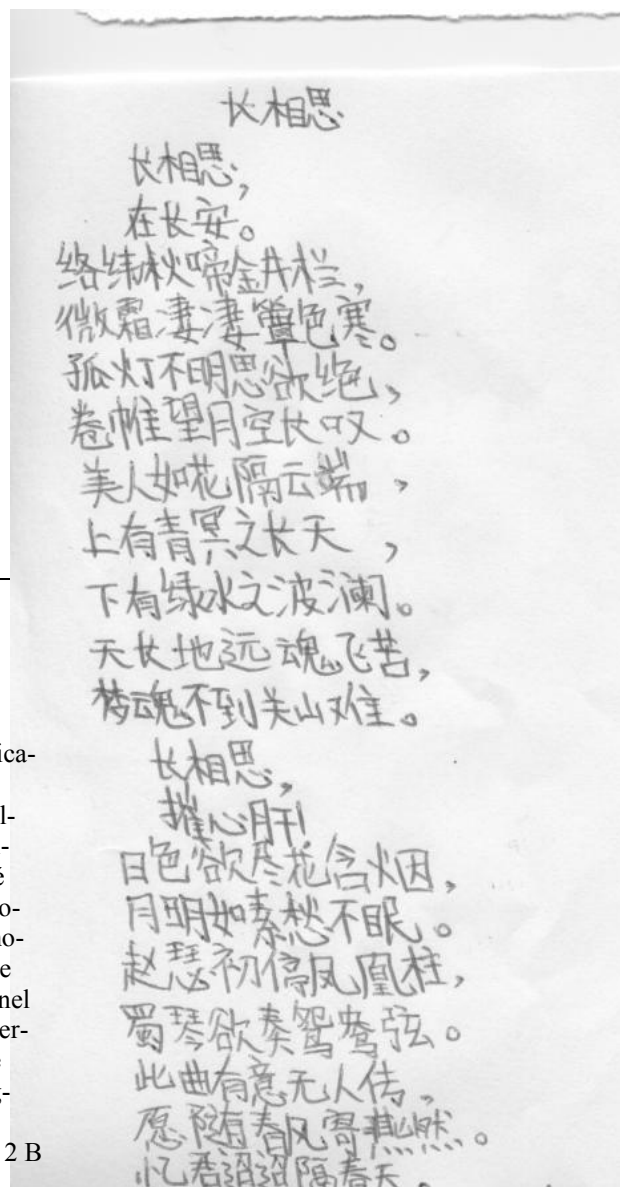 长相思
长相思,
在长安。
络纬秋啼金井栏,
微霜凄凄簟色寒。
孤灯不明思欲绝,
卷帷望月空长叹。
美人如花隔云端,
上有青冥之长天,
下有绿水之波澜。
天长地远魂飞苦,
梦魂不到关山难。
长相思,
摧心肝!
日色欲尽花含烟,
月明如素愁不眠。
赵瑟初停凤凰柱,
蜀琴欲奏鸳鸯弦。
此曲有意无人传,
愿随春风寄燕然。
忆君迢迢隔春天,
ica-
l-
-
é
o-
no-
e
nel
er-
g-
2 B